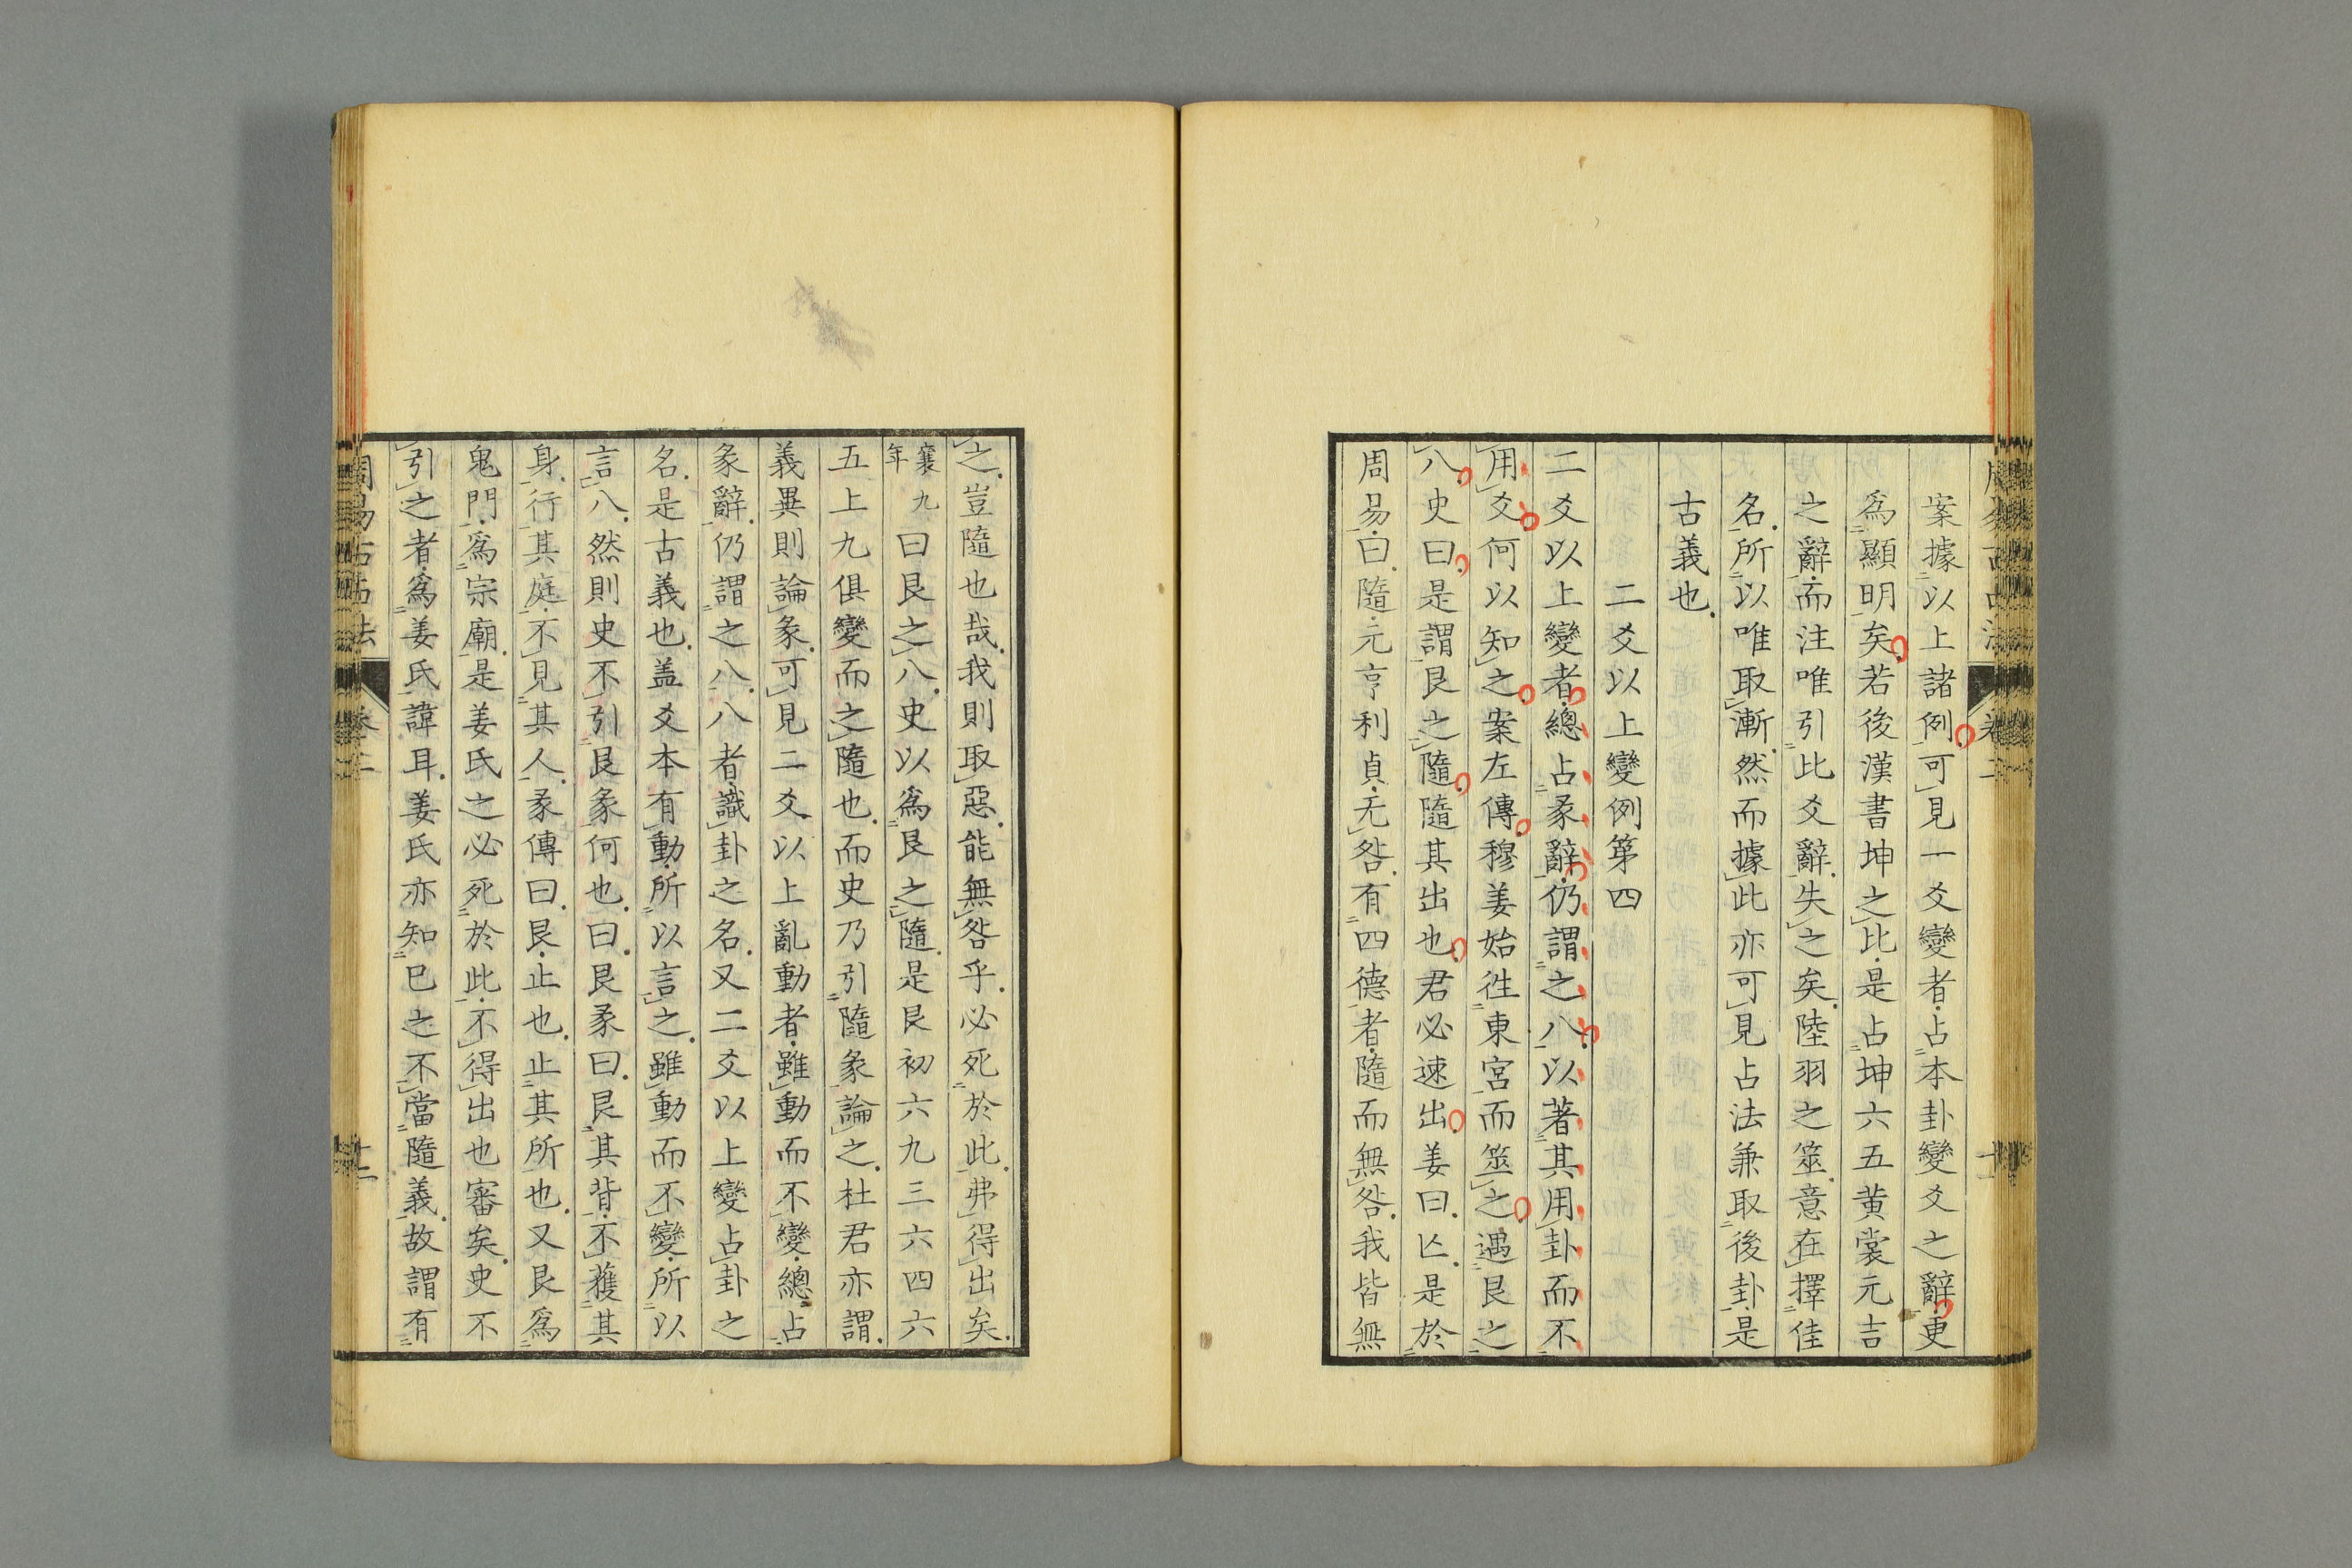 案據以上諸例可見一爻變者占本卦變爻之辭更
爲顯明矣若後漢書坤之比是占坤六五黄裳元吉
之辭而注唯引此爻辭失之矣陸羽之筮意在擇佳
名所以唯取漸然而據此亦可見占法兼取後卦是
古義也
二爻以上變例第四
二爻以上變者總占彖辭仍謂之八以著其用卦而不
用爻何以知之案左傳穆姜始徃東宮而筮之遇艮之
八史曰是謂艮之隨隨其出也君必速出姜曰亡是於
周易曰隨元亨利貞无咎有四德者隨而無咎我皆無
之豈隨也哉我則取惡能無咎乎必死於此弗得出矣
襄九年曰艮之八史以爲艮之隨是艮初六九三六四六
五上九俱變而之隨也而史乃引隨彖論之杜君亦謂
義異則論彖可見二爻以上亂動者雖動而不變總占
彖辭仍謂之八八者識卦之名又二爻以上變占卦之
名是古義也盖爻本有動所以言之雖動而不變所以
言八然則史不引艮彖何也曰艮彖曰艮其背不獲其
身行其庭不見其人彖傳曰艮止也止其所也又艮爲
鬼門爲宗廟是姜氏之必死於此不得出也審矣史不
引之者爲姜氏諱耳姜氏亦知巳之不當隨義故謂有
周易古占法 卷二 十二